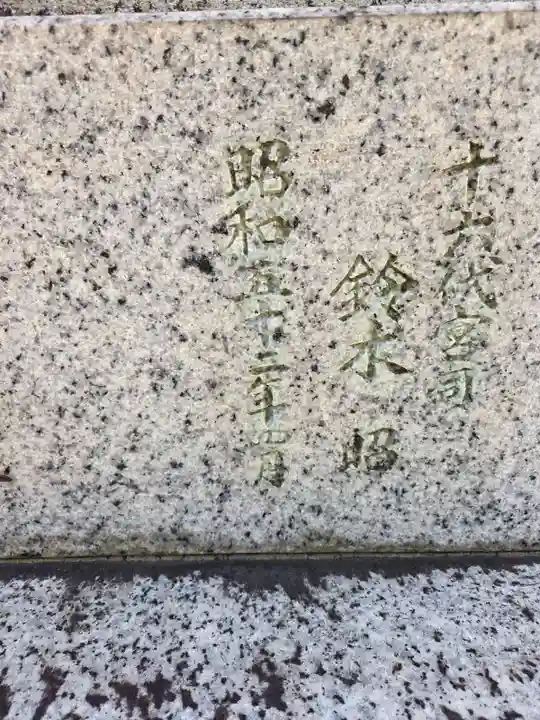 十六代宮司
鈴木昭
昭和五十二年十一月